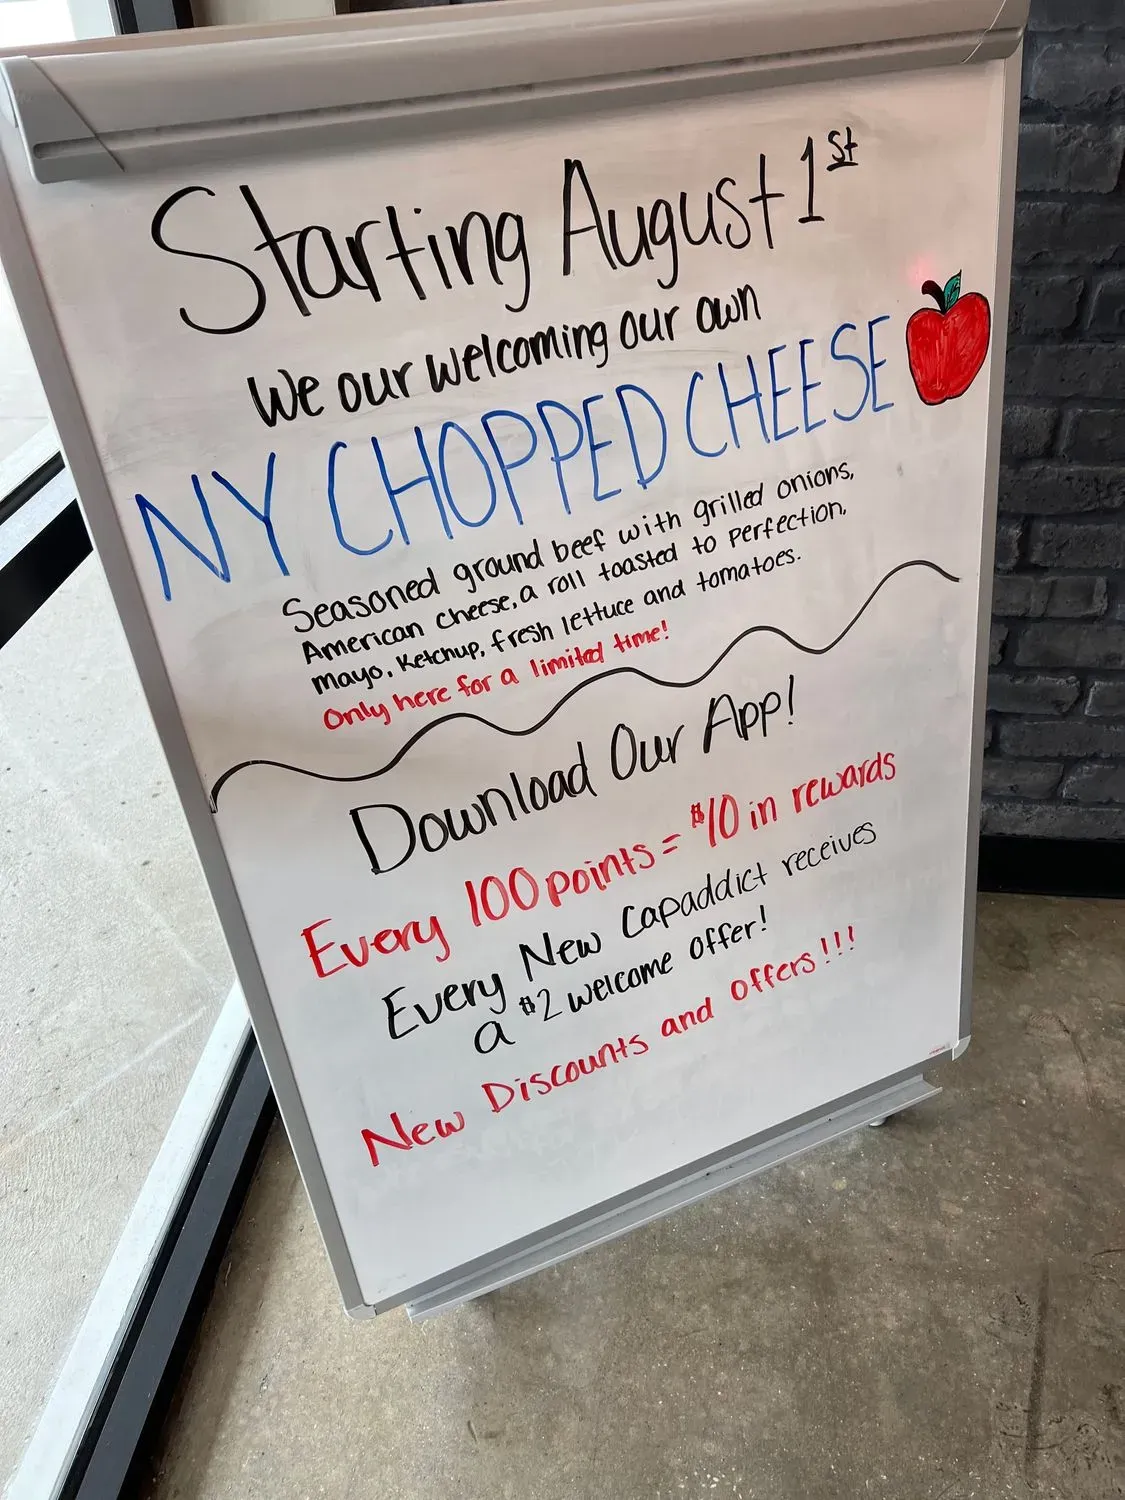 Starting August 1st
We our welcoming our own
NY CHOPPED CHEESE
Seasoned ground beef with grilled onions,
American cheese, a roll toasted to perfection,
mayo, Ketchup, fresh lettuce and tomatoes.
Only here for a limited time!
Download Our App!
Every 100 points = $10 in rewards
Every New Capaddict receives
a $2 welcome offer!
New Discounts and offers!!!